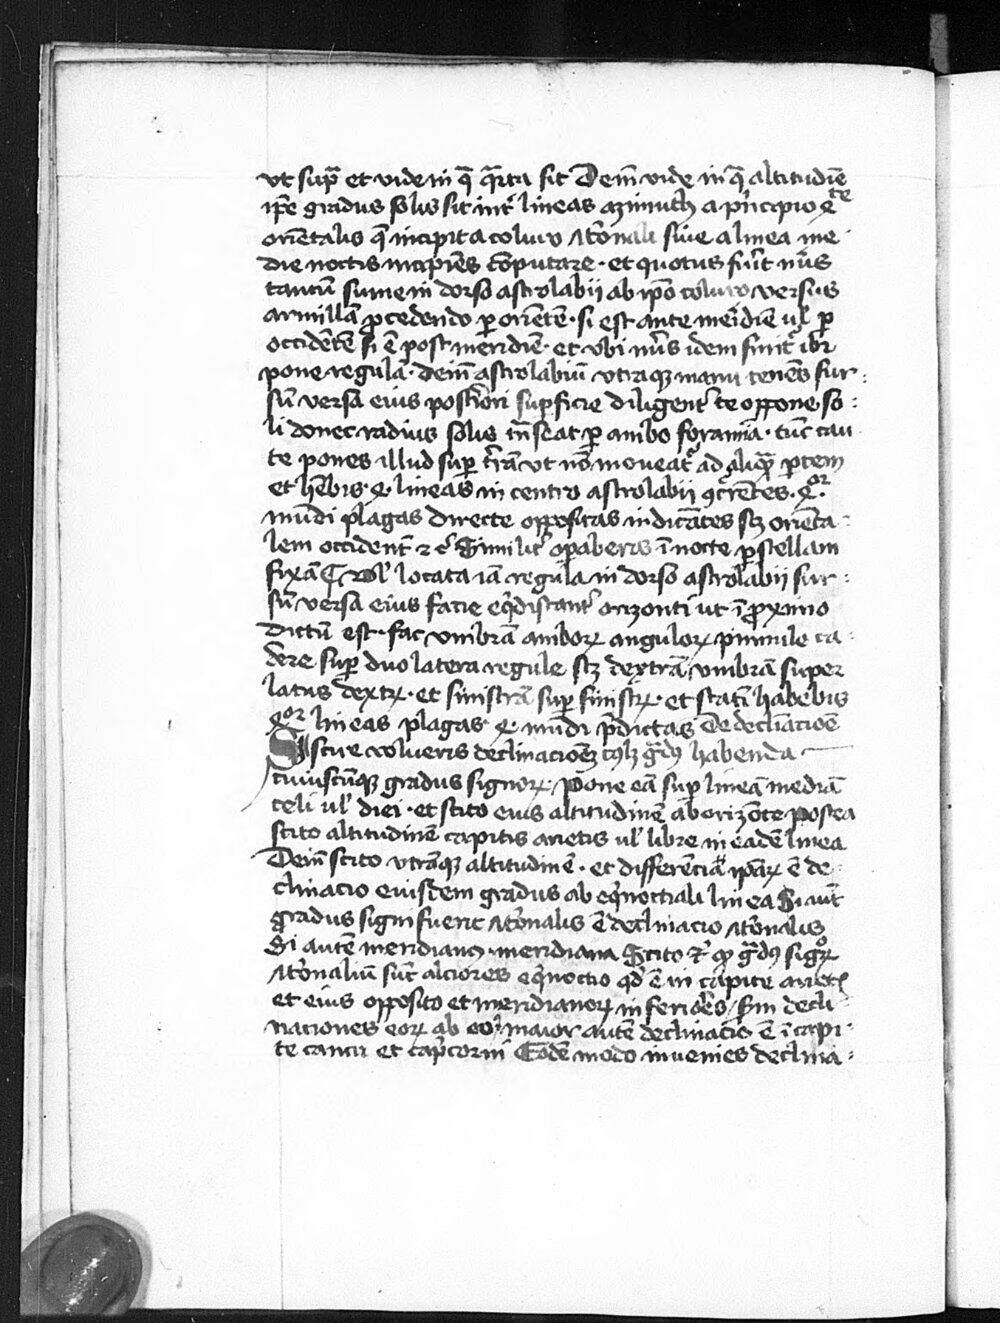 vt sup̄ et vide in q̄ q̄rta sit Dein̄ vide in q̄ altitudīe
ip̄e gradus solis sit int̓ lineas azimuth a pͥncipio q̄te
orīentalis q̄ incipit a coluro st̓onali siue a linea me
die noctis incipīes cōputare · et quotus fuīt nūs
tantū sume in dorso astrolabii ab ip̄o coluro versus
armillā ꝓcedendo ꝑ oriētē · si est ante meīdiē ul̓ ꝑ
occidētē si ē post meridiē · et vbi nūs idem finit̓ ibi
pone regulā · dein̄ astrolabiū vtraqꝫ manu tenēs sur :
sū versa eius posteͥori suꝑficie diligent̓ te oppone so :
li donec radius solis trāseat ꝑ ambo foramīa · tūc cau
te pones illud suꝑ t̓rā vt nō moueat̓ ad aliqā ꝑtem
et hēbis · q · lineas in centro astrolabii ꝯcrētes · qͦr
mūdi plagas directe oppositas indicātes scꝫ oriēta :
lem occidentē ⁊ c̓ Similit̓ oꝑaberis ī nocte ꝑ stellam
fixā Vel̓ locata iā regula in dorso astrolabii sur :
sū versa eius facie eq̓distant̓ orizonti ut ī ꝓximo
dictū est · fac vmbrā amboꝝ anguloꝝ pinnule ca :
dere suꝑ duo latera regule scꝫ dextrā vmbrā super
latus dextꝝ · et sinistrā suꝑ sinistꝝ · et statī habebis
qͦr lineas plagas · q · mūdi p̄dictas De declīatiōe
Si scire volueris declinacioēꝫ habenda
cuiuscūqꝫ gradus signoꝝ · Pone eā suꝑ lineā mediā
celi ul̓ diei · et scito eius altitudinē ab orizōte postea
scito altitudinē capitis arietis ul̓ libre in eadē linea
Dein̄ scito vtrāqꝫ altitudinē · et differenciā ip̄aꝝ ē de :
clinacio eiusdem gradus ab eq̓noctiali linea Si aūt
gradus signi fuerit st̓onalis ē declinacio st̓onalis
Si autē meridian⁹ · meridiana Scito ⁊̓ ꝙ gͣd⁹ sigͦꝝ
st̓onaliū sūt alciores eq̓noctio qd̓ ē in capite ariet̓
et eius opposito et meridianoꝝ inferiōes sm̄ decli
naciones eoꝝ ab eo maior autē declinacō ē ī capi
te cancri et cap̓corni Eodē modo inuenies declina :